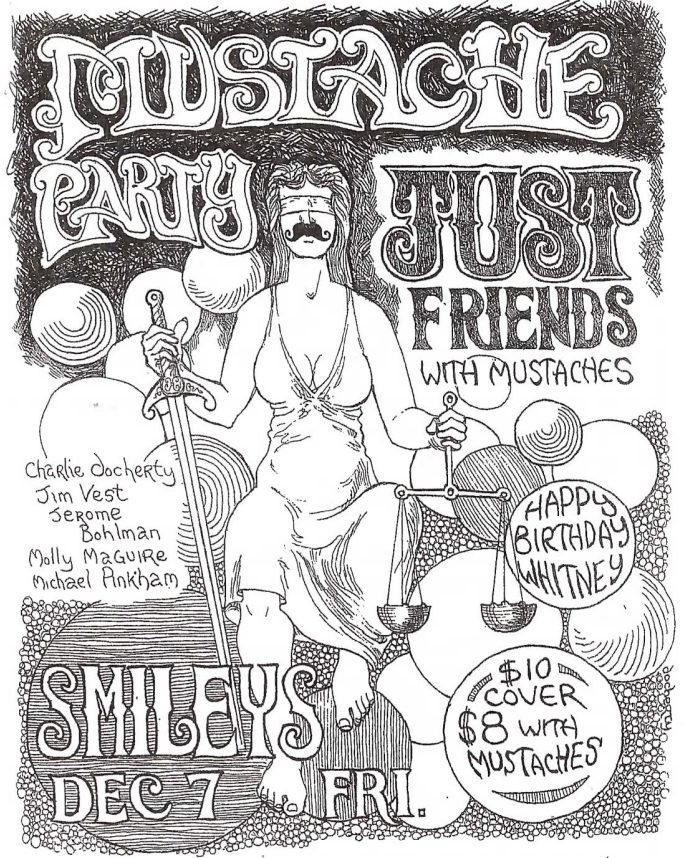 MUSTACHE
PARTY
JUST
FRIENDS
WITH MUSTACHES
Charlie Docherty
Jim Vest
Jerome
Bohlman
Molly MaGuiRe
Michael Pinkham
HAPPY
BIRTHDAY
WHITNEY
$10
COVER
$8 WITH
MUSTACHES
SMILEYS
DEC 7 FRI.